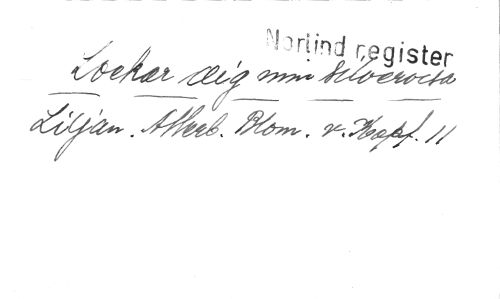 Norlind register
Lockar dig min silverocta
Liljan. Atterb. Blom. v. Kopf. 11